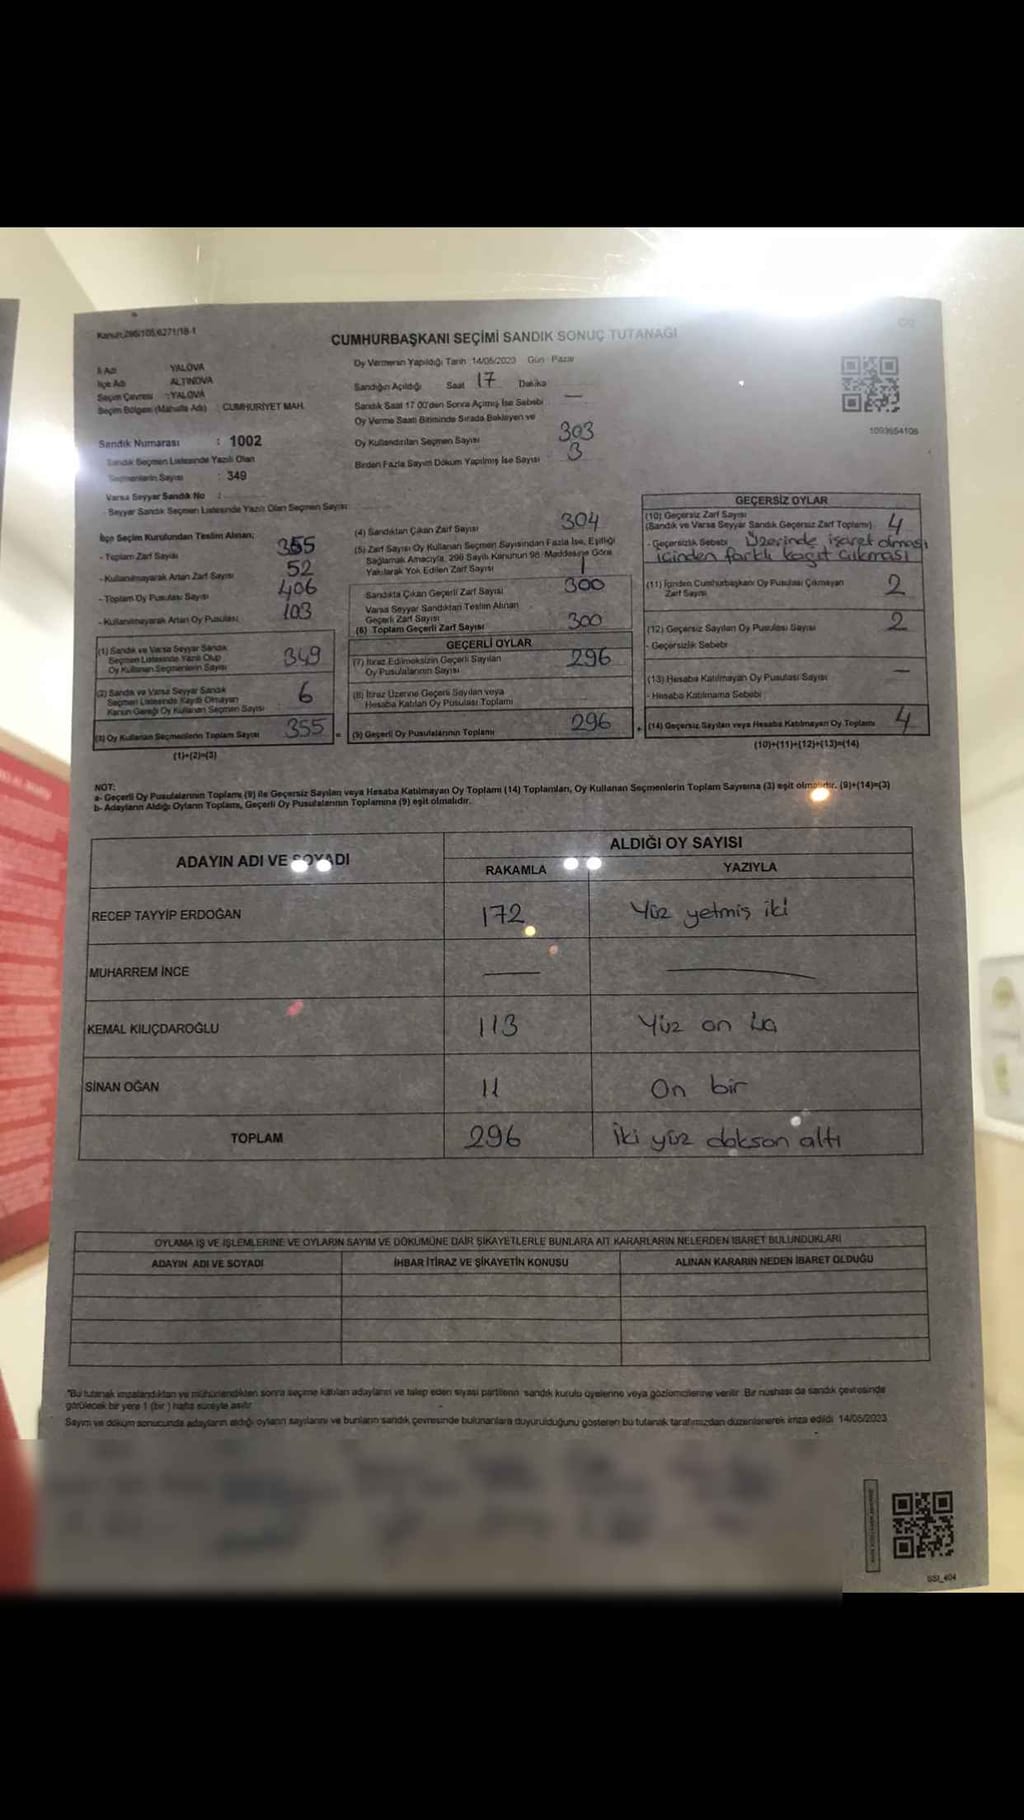 Kanun:298/105,6271/18-1
CUMHURBAŞKANI SEÇİMİ SANDIK SONUÇ TUTANAĞI
İl Adı YALOVA
İlçe Adı ALTINOVA
Seçim Çevresi : YALOVA
Seçim Bölgesi (Mahalle Adı) : CUMHURİYET MAH.
Sandık Numarası : 1002
Sandık Seçmen Listesinde Yazılı Olan
Seçmenlerin Sayısı : 349
Varsa Seyyar Sandık No :
Seyyar Sandık Seçmen Listesinde Yazılı Olan Seçmen Sayısı
Oy Vermenin Yapıldığı Tarih 14/05/2023 Gün : Pazar
Sandığın Açıldığı Saat 17 Dakika
Sandık Saat 17.00'den Sonra Açılmış İse Sebebi —
Oy Verme Saati Bitiminde Sırada Bekleyen ve
Oy Kullandırılan Seçmen Sayısı 303
Birden Fazla Sayım Döküm Yapılmış İse Sayısı 3
1093654106
İlçe Seçim Kurulundan Teslim Alınan;
- Toplam Zarf Sayısı 355
- Kullanılmayarak Artan Zarf Sayısı 52
- Toplam Oy Pusulası Sayısı 406
- Kullanılmayarak Artan Oy Pusulası 103
(1) Sandık ve Varsa Seyyar Sandık
Seçmen Listesinde Yazılı Olup
Oy Kullanan Seçmenlerin Sayısı 349
(2) Sandık ve Varsa Seyyar Sandık
Seçmen Listesinde Kayıtlı Olmayan
Kanun Gereği Oy Kullanan Seçmen Sayısı 6
(3) Oy Kullanan Seçmenlerin Toplam Sayısı 355 =
(1)+(2)=(3)
(4) Sandıktan Çıkan Zarf Sayısı 304
(5) Zarf Sayısı Oy Kullanan Seçmen Sayısından Fazla İse, Eşitliği
Sağlamak Amacıyla, 298 Sayılı Kanunun 98. Maddesine Göre
Yakılarak Yok Edilen Zarf Sayısı 1
Sandıkta Çıkan Geçerli Zarf Sayısı 300
Varsa Seyyar Sandıktan Teslim Alınan
Geçerli Zarf Sayısı
(6) Toplam Geçerli Zarf Sayısı 300
GEÇERLİ OYLAR
(7) İtiraz Edilmeksizin Geçerli Sayılan
Oy Pusulalarının Sayısı 296
(8) İtiraz Üzerine Geçerli Sayılan veya
Hesaba Katılan Oy Pusulası Toplamı
(9) Geçerli Oy Pusulalarının Toplamı 296 +
GEÇERSİZ OYLAR
(10) Geçersiz Zarf Sayısı
(Sandık ve Varsa Seyyar Sandık Geçersiz Zarf Toplamı) 4
- Geçersizlik Sebebi Üzerinde işaret olması
içinden farklı kağıt çıkması
(11) İçinden Cumhurbaşkanı Oy Pusulası Çıkmayan
Zarf Sayısı 2
(12) Geçersiz Sayılan Oy Pusulası Sayısı 2
- Geçersizlik Sebebi
(13) Hesaba Katılmayan Oy Pusulası Sayısı —
- Hesaba Katılmama Sebebi
(14) Geçersiz Sayılan veya Hesaba Katılmayan Oy Toplamı 4
(10)+(11)+(12)+(13)=(14)
NOT:
a- Geçerli Oy Pusulalarının Toplamı (9) ile Geçersiz Sayılan veya Hesaba Katılmayan Oy Toplamı (14) Toplamları, Oy Kullanan Seçmenlerin Toplam Sayısına (3) eşit olmalıdır. (9)+(14)=(3)
b- Adayların Aldığı Oyların Toplamı, Geçerli Oy Pusulalarının Toplamına (9) eşit olmalıdır.
ADAYIN ADI VE SOYADI
ALDIĞI OY SAYISI
RAKAMLA YAZIYLA
RECEP TAYYİP ERDOĞAN 172 Yüz yetmiş iki
MUHARREM İNCE — —
KEMAL KILIÇDAROĞLU 113 Yüz on
SİNAN OĞAN 11 On bir
TOPLAM 296 İki yüz doksan altı
OYLAMA İŞ VE İŞLEMLERİNE VE OYLARIN SAYIM VE DÖKÜMÜNE DAİR ŞİKAYETLERLE BUNLARA AİT KARARLARIN NELERDEN İBARET BULUNDUKLARI
ADAYIN ADI VE SOYADI İHBAR İTİRAZ VE ŞİKAYETİN KONUSU ALINAN KARARIN NEDEN İBARET OLDUĞU
"Bu tutanak imzalandıktan ve mühürlendikten sonra seçime katılan adayların ve talep eden siyasi partilerin sandık kurulu üyelerine veya gözlemcilerine verilir. Bir nüshası da sandık çevresinde
görülecek bir yere 1 (bir) hafta süreyle asılır.
Sayım ve döküm sonucunda adayların aldığı oyların sayılarını ve bunların sandık çevresinde bulunanlara duyurulduğunu gösteren bu tutanak tarafımızdan düzenlenerek imza edildi. 14/05/2023
SSI_404